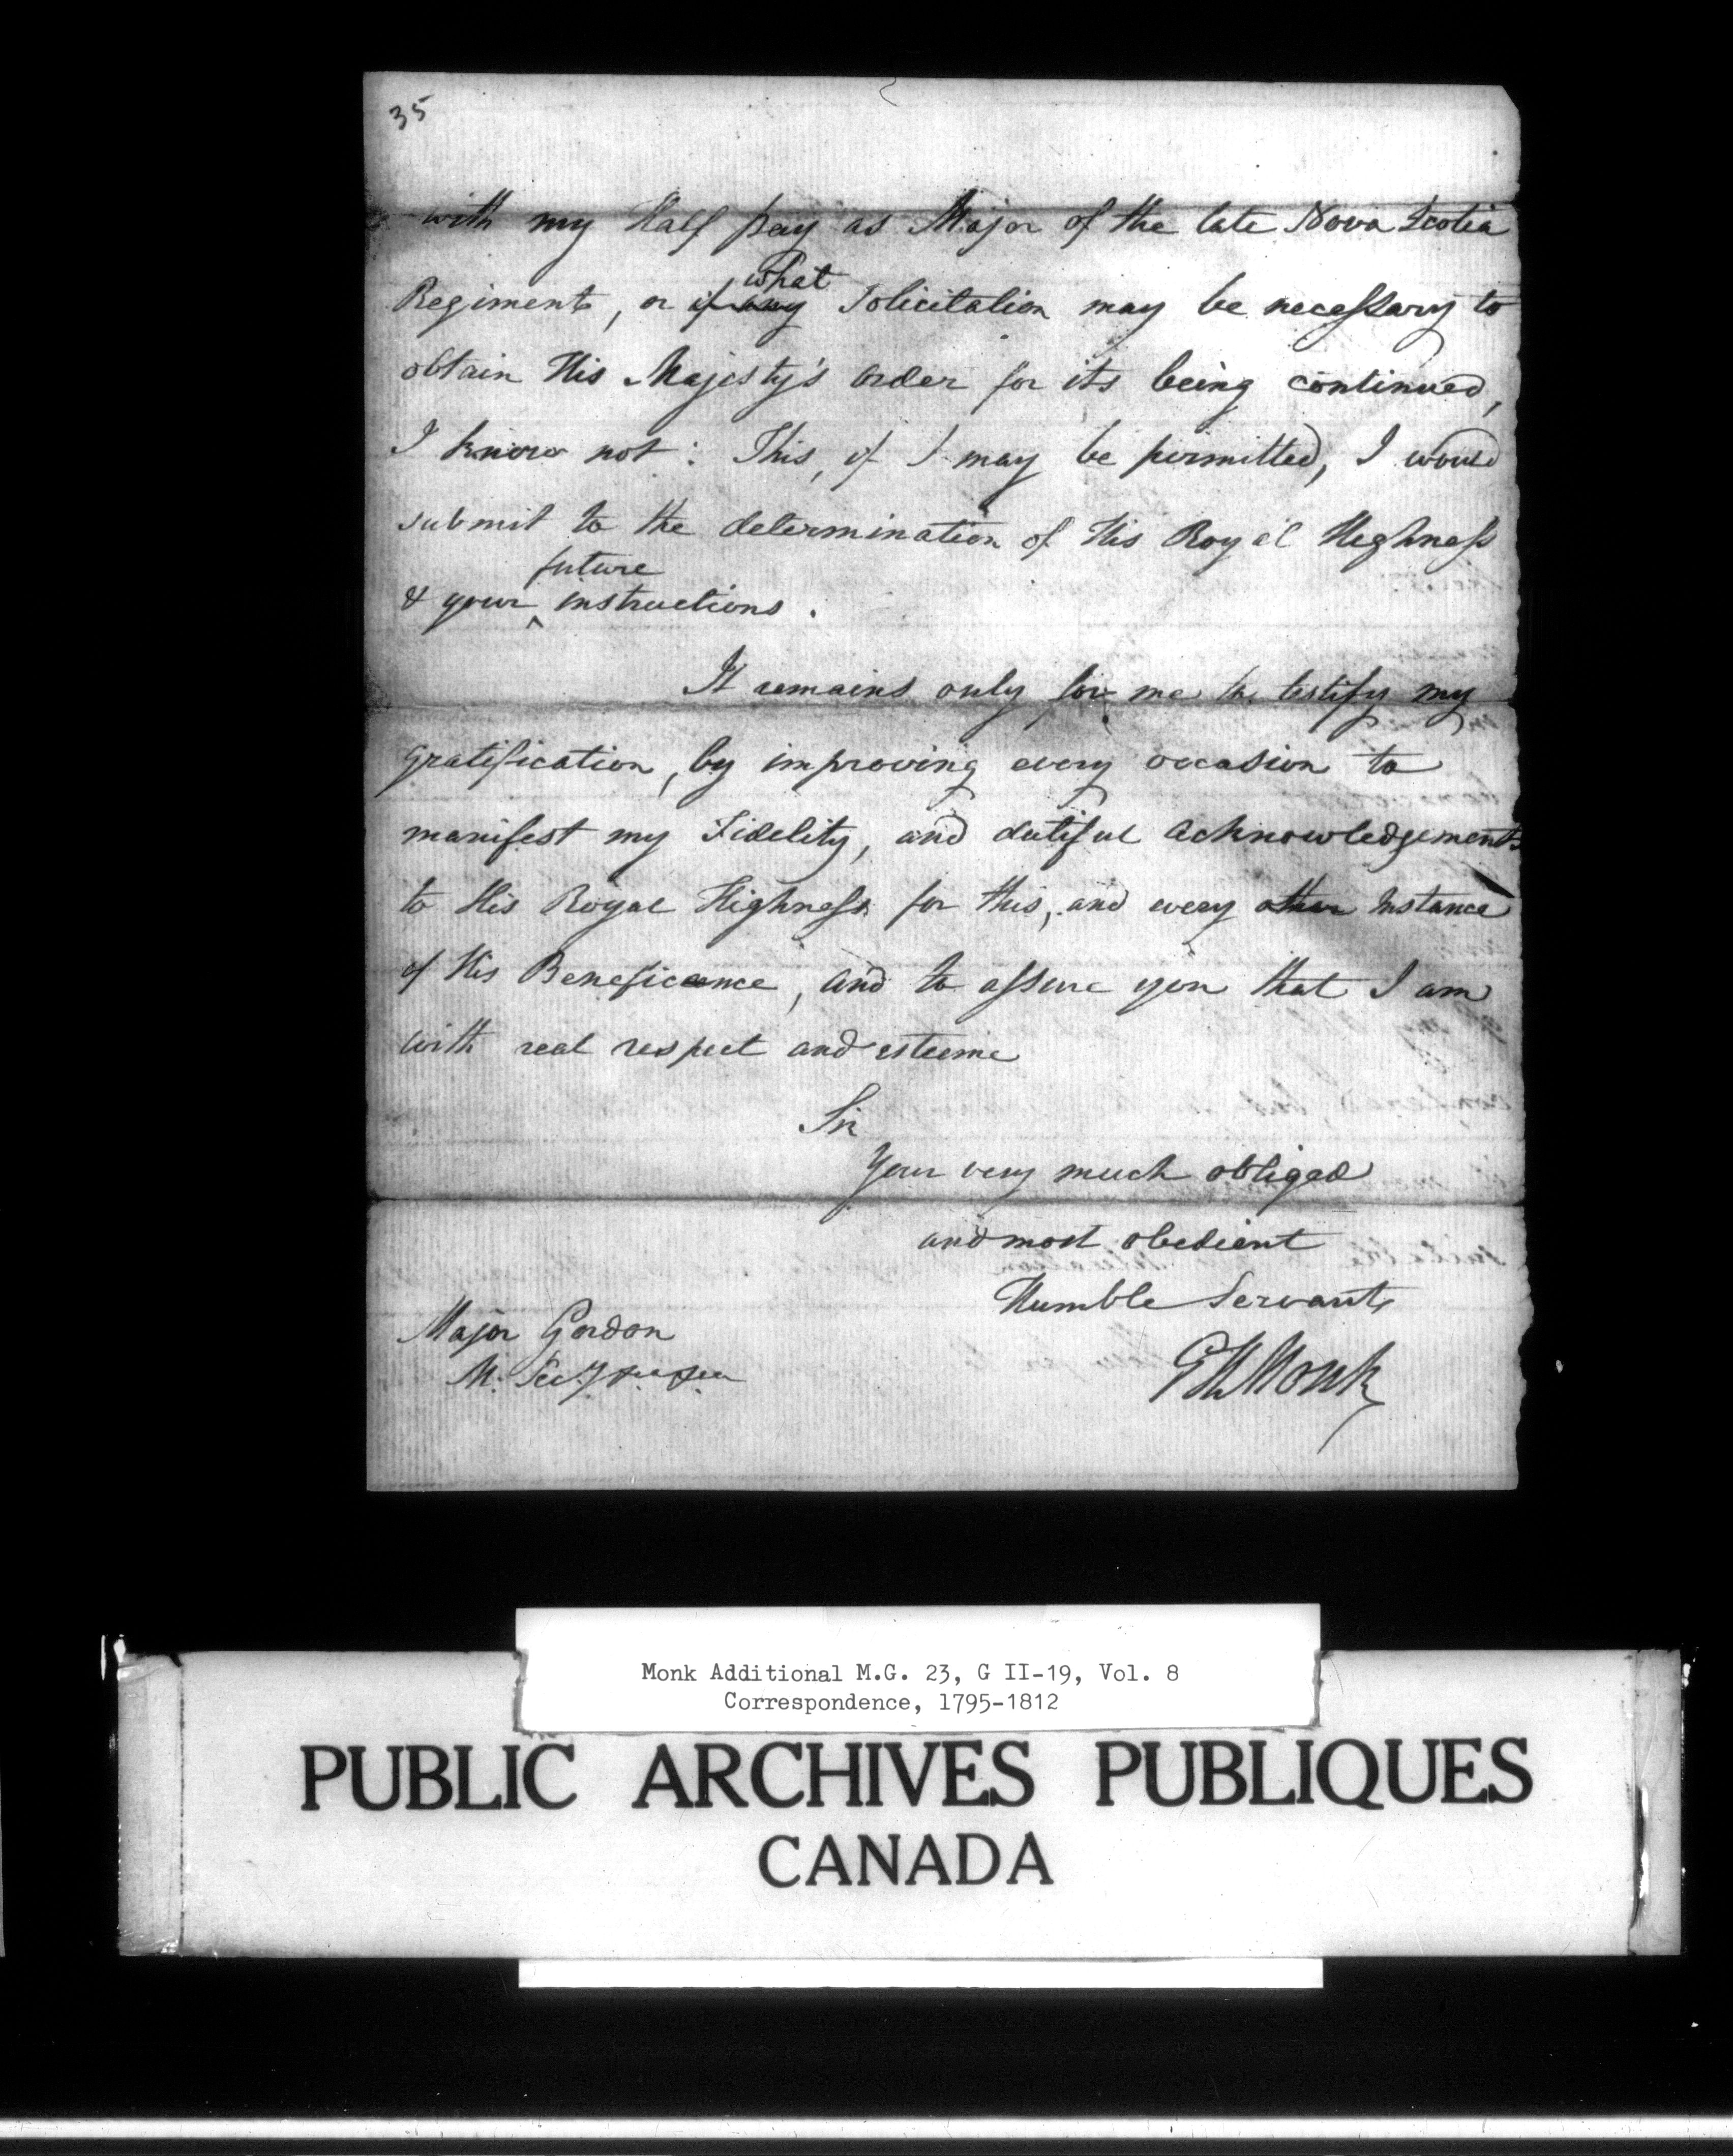 35
with my Half pay as Major of the late Nova Scotia
what
Regiment, or if any Solicitation may be necessary to
obtain His Majesty's Order for its being continued,
I know not: This, if I may be permitted, I would
submit to the determination of His Royal Highness
future
& your ^ instructions.
It remains only for me to testify my
gratification, by improving every occasion to
manifest my Fidelity, and dutiful acknowledgements
to His Royal Highness for this, and every other Instance
of His Beneficence, and to assure you that I am
with real respect and esteeme
Sir
Your very much obliged
and most obedient
Humble Servant
Major Gordon
M. Secy
GHMonk
Monk Additional M.G. 23, G II-19, Vol. 8
Correspondence, 1795-1812
PUBLIC ARCHIVES PUBLIQUES
CANADA